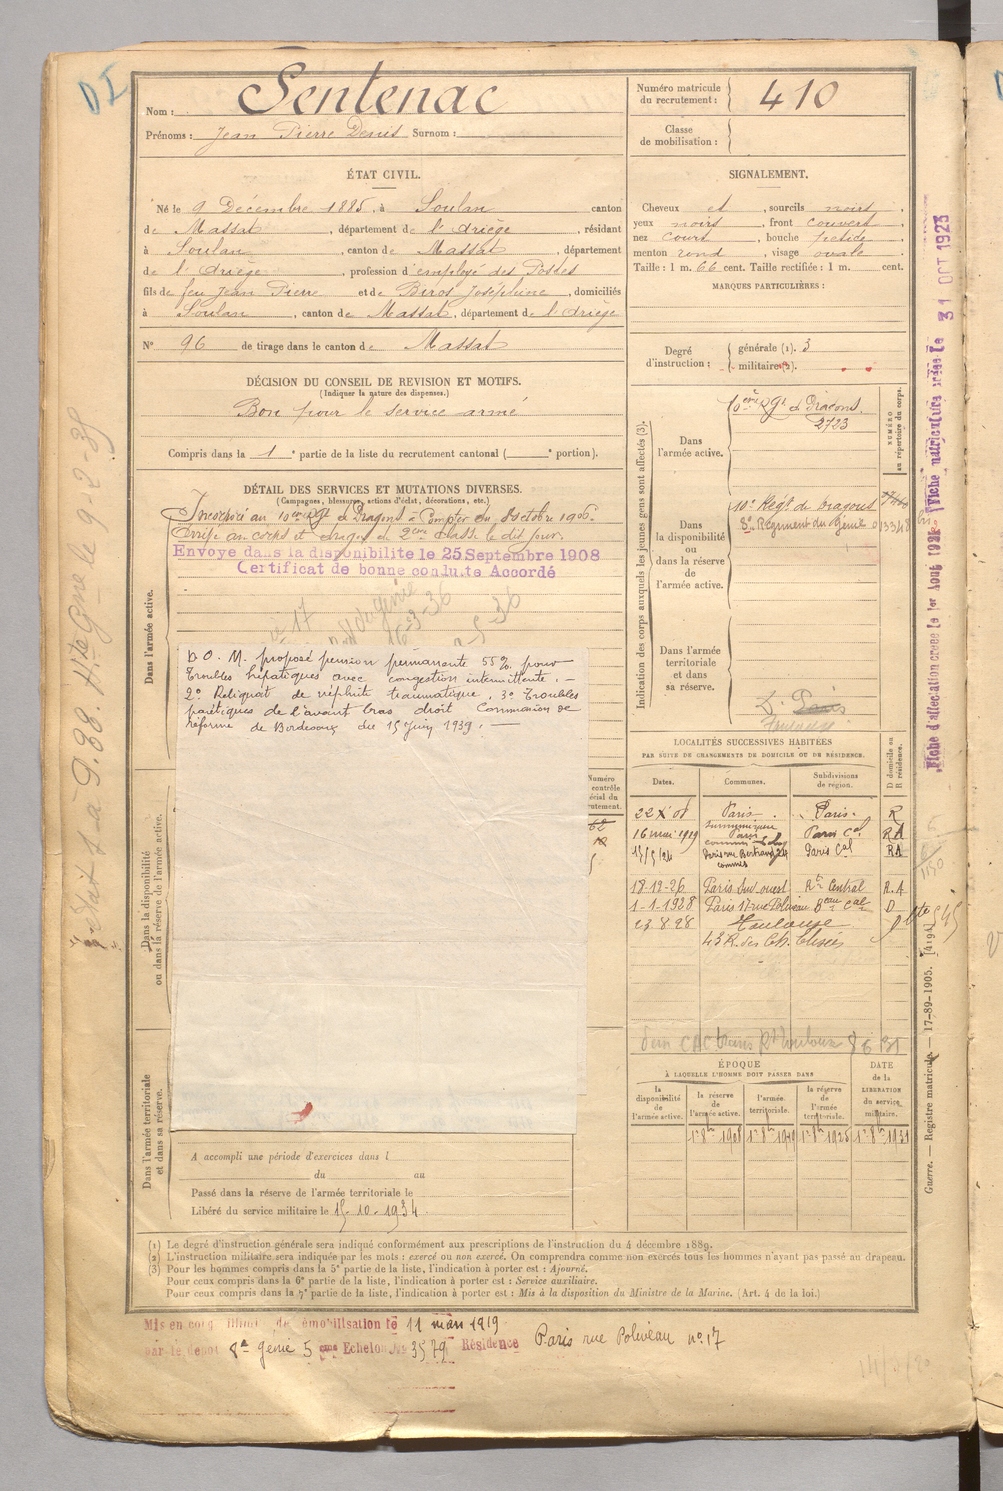 DI
Nom : Sentenac
Prénoms : Jean Pierre Denis Surnom :
Numéro matricule du recrutement : 410
Classe de mobilisation :
ÉTAT CIVIL.
Né le 9 Décembre 1885, à Soulan canton
de Massat, département de l'Ariège, résidant
à Soulan, canton de Massat, département
de l'Ariège, profession d'employé des Postes
fils de feu Jean Pierre et de Biros Joséphine, domiciliés
à Soulan, canton de Massat, département de l'Ariège
N° 96 de tirage dans le canton de Massat
SIGNALEMENT.
Cheveux et, sourcils noirs,
yeux noirs, front couvert
nez court, bouche petite
menton rond, visage ovale
Taille : 1 m. 66 cent. Taille rectifiée : 1 m. cent.
MARQUES PARTICULIÈRES :
Degré d'instruction : générale (1). 3
militaire (2).
DÉCISION DU CONSEIL DE REVISION ET MOTIFS.
(Indiquer la nature des dispenses.)
Bon pour le service armé
Compris dans la 1e partie de la liste du recrutement cantonal ( e portion).
DÉTAIL DES SERVICES ET MUTATIONS DIVERSES.
(Campagnes, blessures, actions d'éclat, décorations, etc.)
Incorporé au 10ème Rgt de Dragons à Compter du 8 octobre 1906.
Arrivé au corps et dragon de 2ème classe le dit jour.
Envoyé dans la disponibilité le 25 Septembre 1908
Certificat de bonne conduite Accordé
Dans l'armée active.
D. O. M. proposé pension permanente 55% pour
troubles hépatiques avec congestion intermittente. —
2° Reliquat de néphrite traumatique. 3° Troubles
parétiques de l'avant bras droit Commission de
réforme de Bordeaux du 15 Juin 1939. —
Dans la disponibilité ou dans la réserve de l'armée active.
Dans l'armée territoriale et dans sa réserve.
A accompli une période d'exercices dans l
du au
Passé dans la réserve de l'armée territoriale le
Libéré du service militaire le 15-10-1934
Indication des corps auxquels les jeunes gens sont affectés (3).
NUMÉRO au répertoire du corps.
Dans l'armée active.
10ème Rgt de Dragons.
2723
Dans la disponibilité ou dans la réserve de l'armée active.
10e Régt de Dragons
8e Régiment du Génie 013348
Dans l'armée territoriale et dans sa réserve.
Paris
Toulouse
LOCALITÉS SUCCESSIVES HABITÉES
PAR SUITE DE CHANGEMENTS DE DOMICILE OU DE RÉSIDENCE.
Dates. Communes. Subdivisions de région. D domicile ou R résidence.
Paris Paris R
16 mai 1919 Paris Paris Cal RA
Paris rue Bertrand 24 Paris Cal RA
18-12-26 Paris Sud ouest Central R.A
1-1-1928 Paris 17 rue Poliveau Cal D
23.8.28 Toulouse
ÉPOQUE
À LAQUELLE L'HOMME DOIT PASSER DANS
la disponibilité de l'armée active. la réserve de l'armée active. l'armée territoriale. la réserve de l'armée territoriale. DATE de la LIBÉRATION du service militaire.
1er 8bre 1908 1er 8bre 1919 1er 8bre 1925 1er 8bre 1931
Fiche d'affectation créée le 1er Août 1923 Fiche matriculaire créée le 31 OCT 1923
Guerre. — Registre matricule. — 17-89-1905. [4194]
(1) Le degré d'instruction générale sera indiqué conformément aux prescriptions de l'instruction du 4 décembre 1889.
(2) L'instruction militaire sera indiquée par les mots : exercé ou non exercé. On comprendra comme non exercés tous les hommes n'ayant pas passé au drapeau.
(3) Pour les hommes compris dans la 5e partie de la liste, l'indication à porter est : Ajourné.
Pour ceux compris dans la 6e partie de la liste, l'indication à porter est : Service auxiliaire.
Pour ceux compris dans la 7e partie de la liste, l'indication à porter est : Mis à la disposition du Ministre de la Marine. (Art. 4 de la loi.)
Mis en congé illimité de démobilisation le 11 mars 1919
par le dépôt 8e Génie 5ème Echelon No 3579 Résidence Paris rue Poliveau no 17